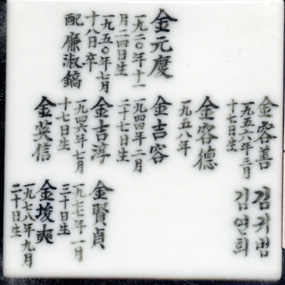 金元慶
一九二〇年十一
月二四日生
一九五〇年七月
十八日卒
配廉淑鎬
金容善
一九五六年三月
十七日生
金容德
一九五八年
金吉容
一九四四年二月
二十七日生
金吉淳
一九四六年七月
十七日生
金英信
김귀범
김연희
金賢貞
一九七七年一月
三十日生
金埈奭
一九七八年九月
二十日生